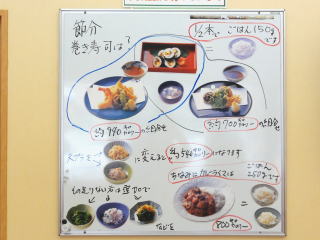 節分
巻き寿司は?
1/2本で ごはん150g
です
約990キロカロリーの定食
約700キロカロリーの定食
天ぷらを
に変えると約540キロカロリーになります
ちなみにカレーライスは
ごはん
250gで
物足りない方は単品で
などを
800キロカロリー